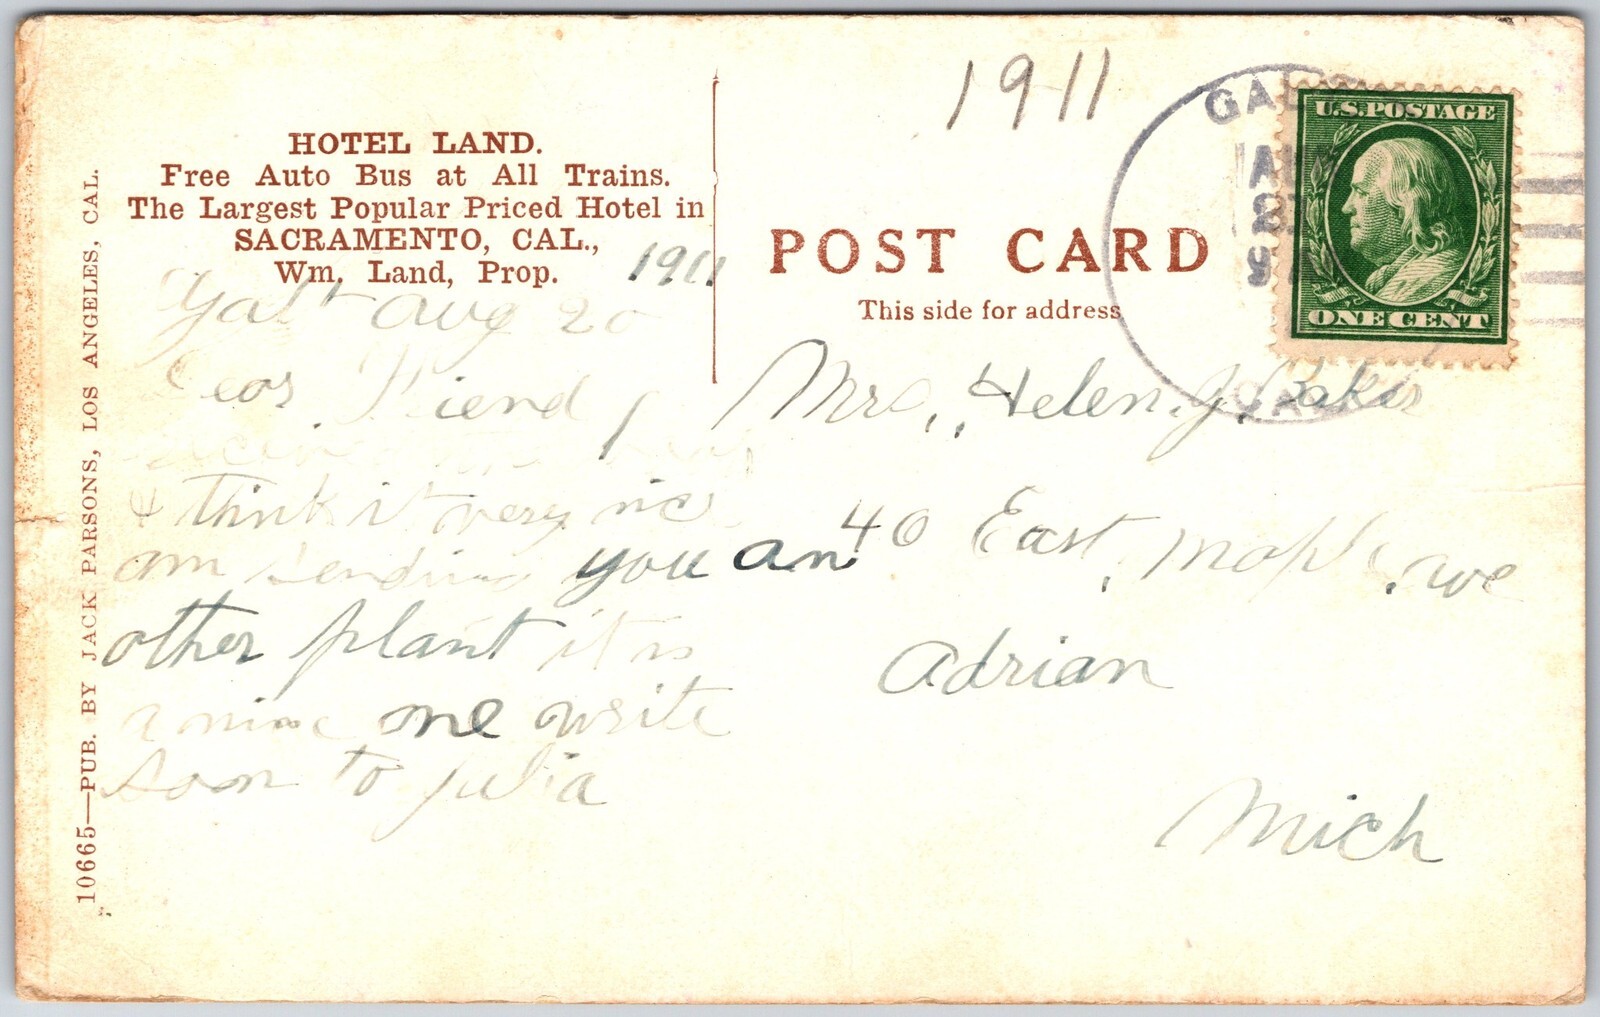 HOTEL LAND.
Free Auto Bus at All Trains.
The Largest Popular Priced Hotel in
SACRAMENTO, CAL.,
Wm. Land, Prop.
1911
Galt Aug 20
Dear Friend,
& think it very nice
am sending you an
other plant it is
a nice one write
soon to Julia
10665—PUB. BY JACK PARSONS, LOS ANGELES, CAL.
1911
POST CARD
This side for address
U.S. POSTAGE
ONE CENT
GAL
CAL
Mrs, Helen, J, Baker
40 East, Maple, ave
Adrian
Mich